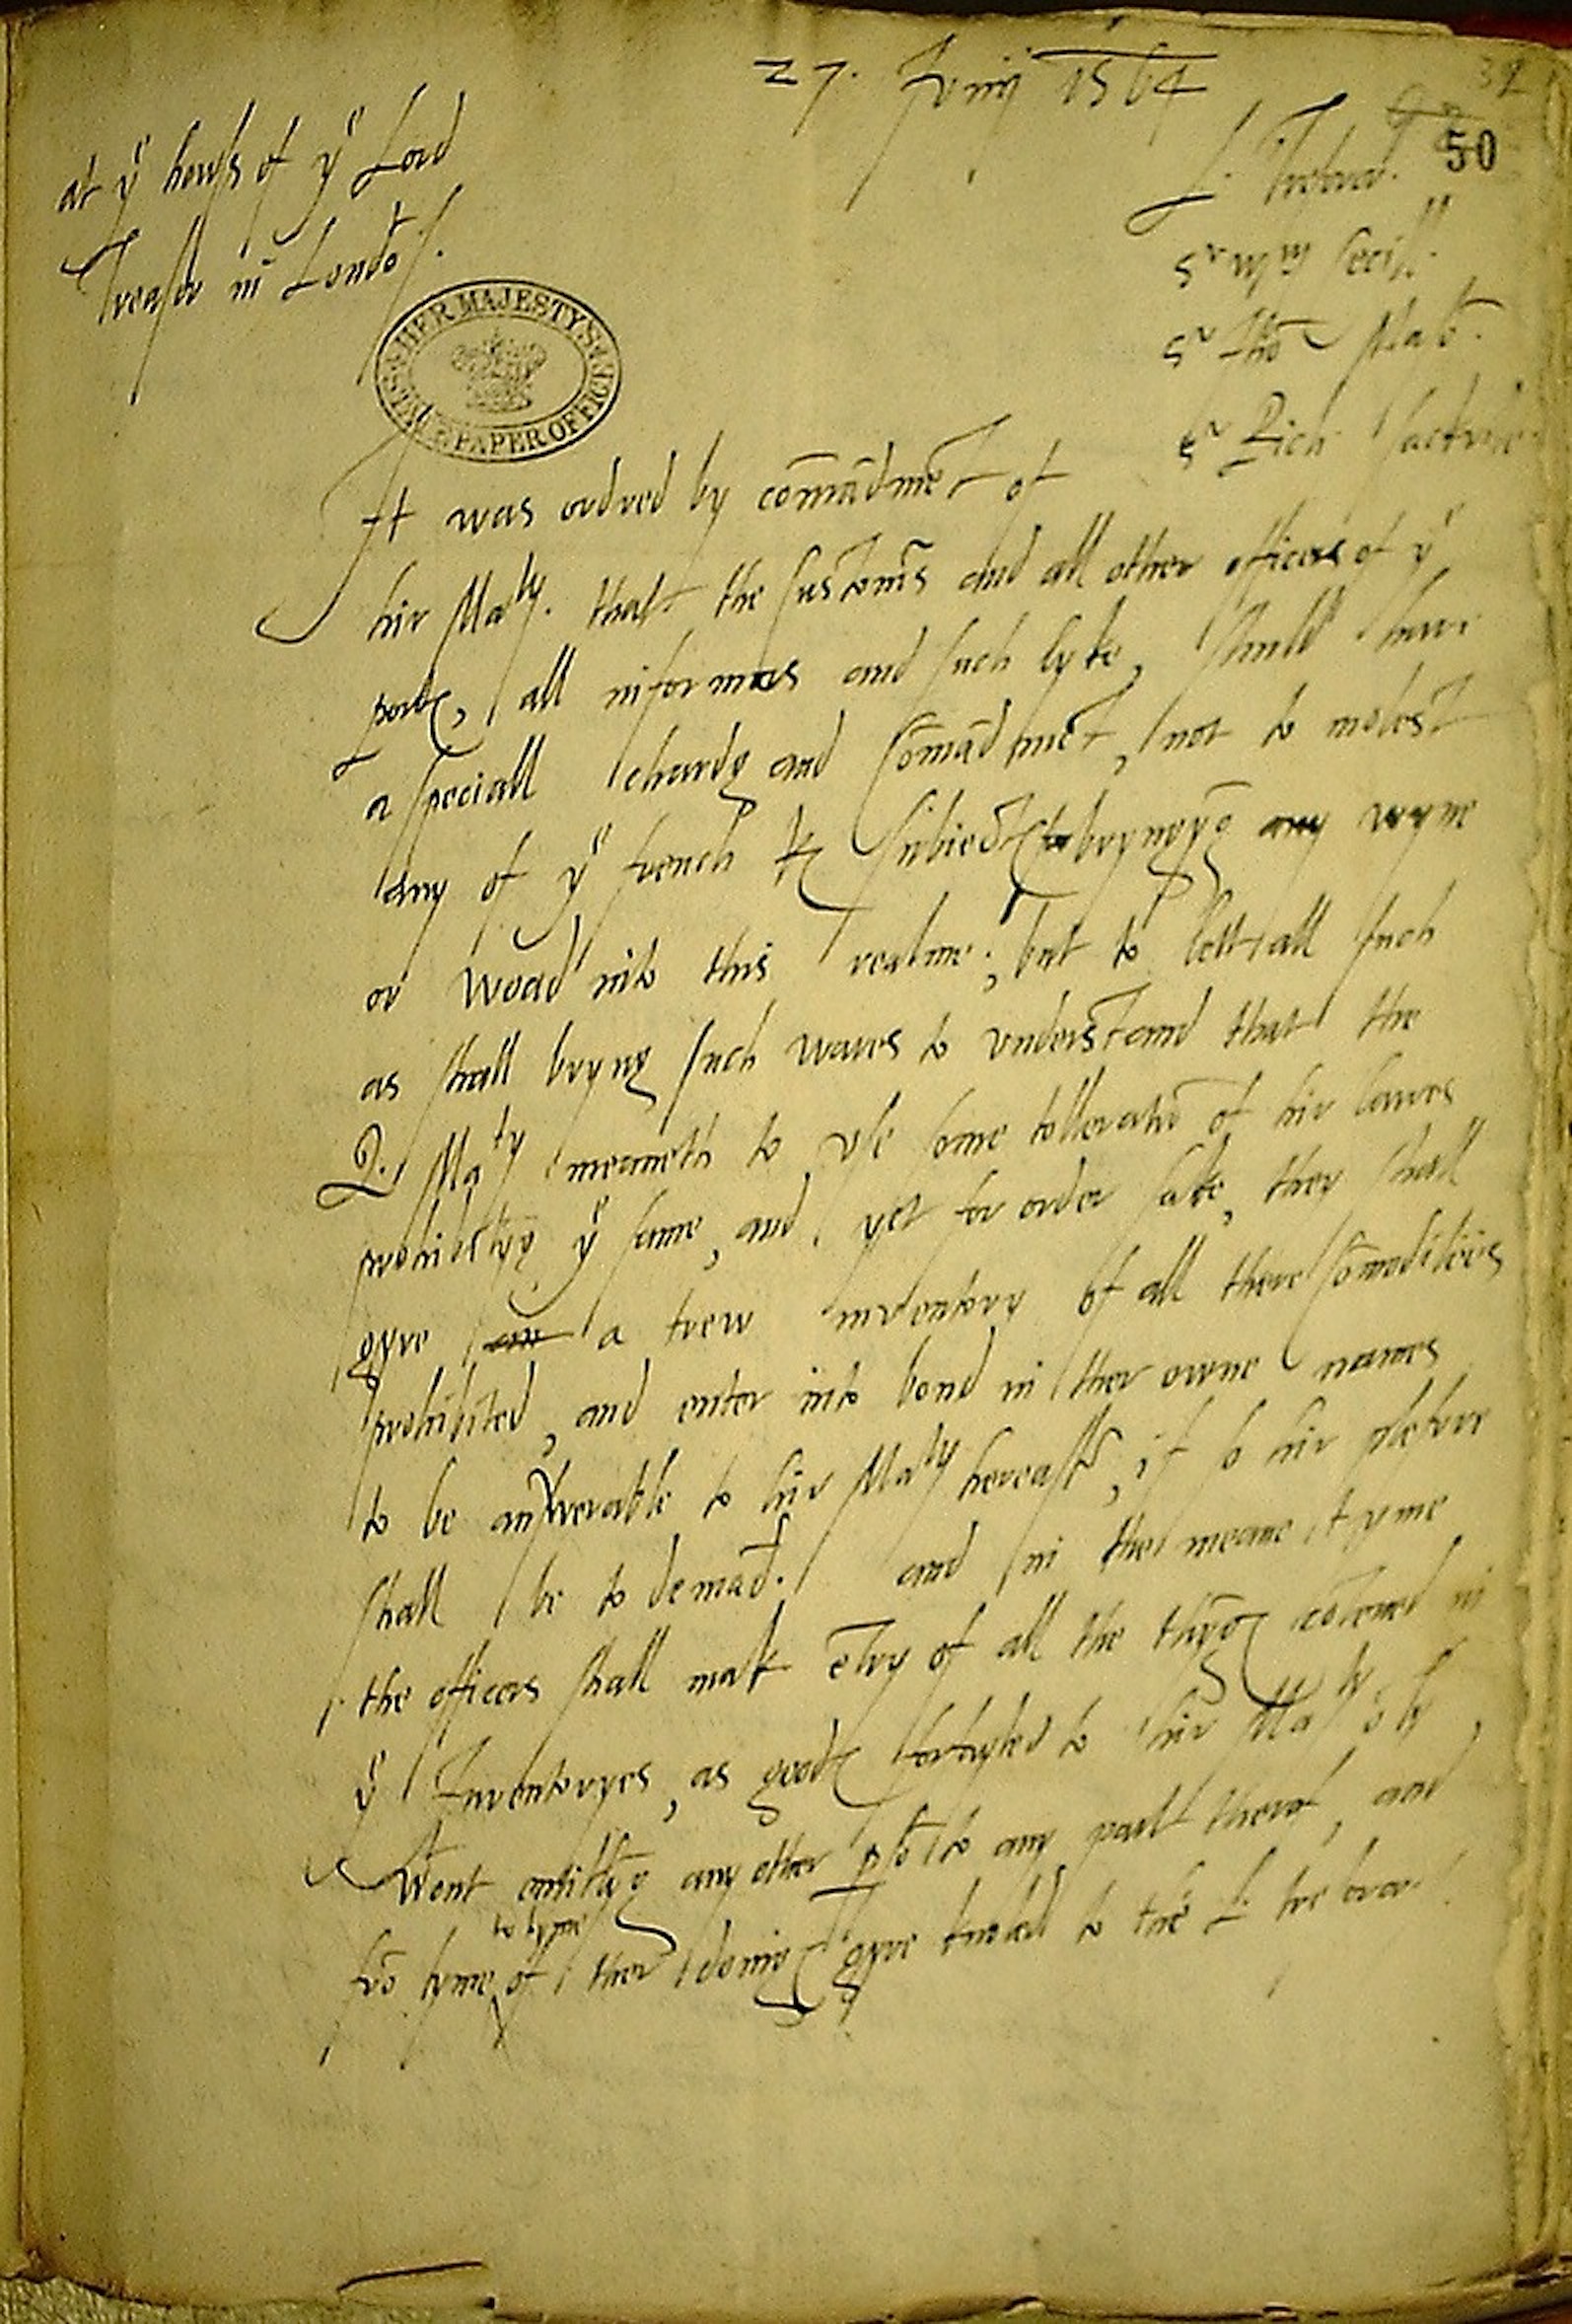 27. Junij 1564
32
50
at yͤ howss of yͤ Lord
Treasor in London.
L. Tresorer.
Sr Wm Cecill.
Sr Tho
Sr Rich Sackvile
HER MAJESTY'S STATE PAPER OFFICE
It was ordred by cōmādmēt of
hir Maty. that the Customrs and all other officers of yͤ
portes, all informers and such lyke, shuld have
a speciall chardg and Cōmādmēt, not to molest
any of yͤ french K Subiectes bryngyg any wyne
or woad into this realme; but to lett all such
as shall bryng such wares to understand that the
Q. Maty meaneth to use some tolleratiō of hir lawes
prohibityg yͤ same, and yet for order sake, they shall
gyve an a trew inventory of all there Cōmodities
prohibited, and enter into bond in ther owne names
to be answerable to hir Maty hereaftr, if so hir plesure
shall be to demād. and in the meane tyme
the officers shall mak ētry of all the thyges cōtened in
yͤ Inventoryes, as goodes forfayted to hir Maty ōly,
wtout entitlyg any other psō to any part therof, and
frō tyme to tyme of ther doinges gyve knoledg to the L. tresorar.